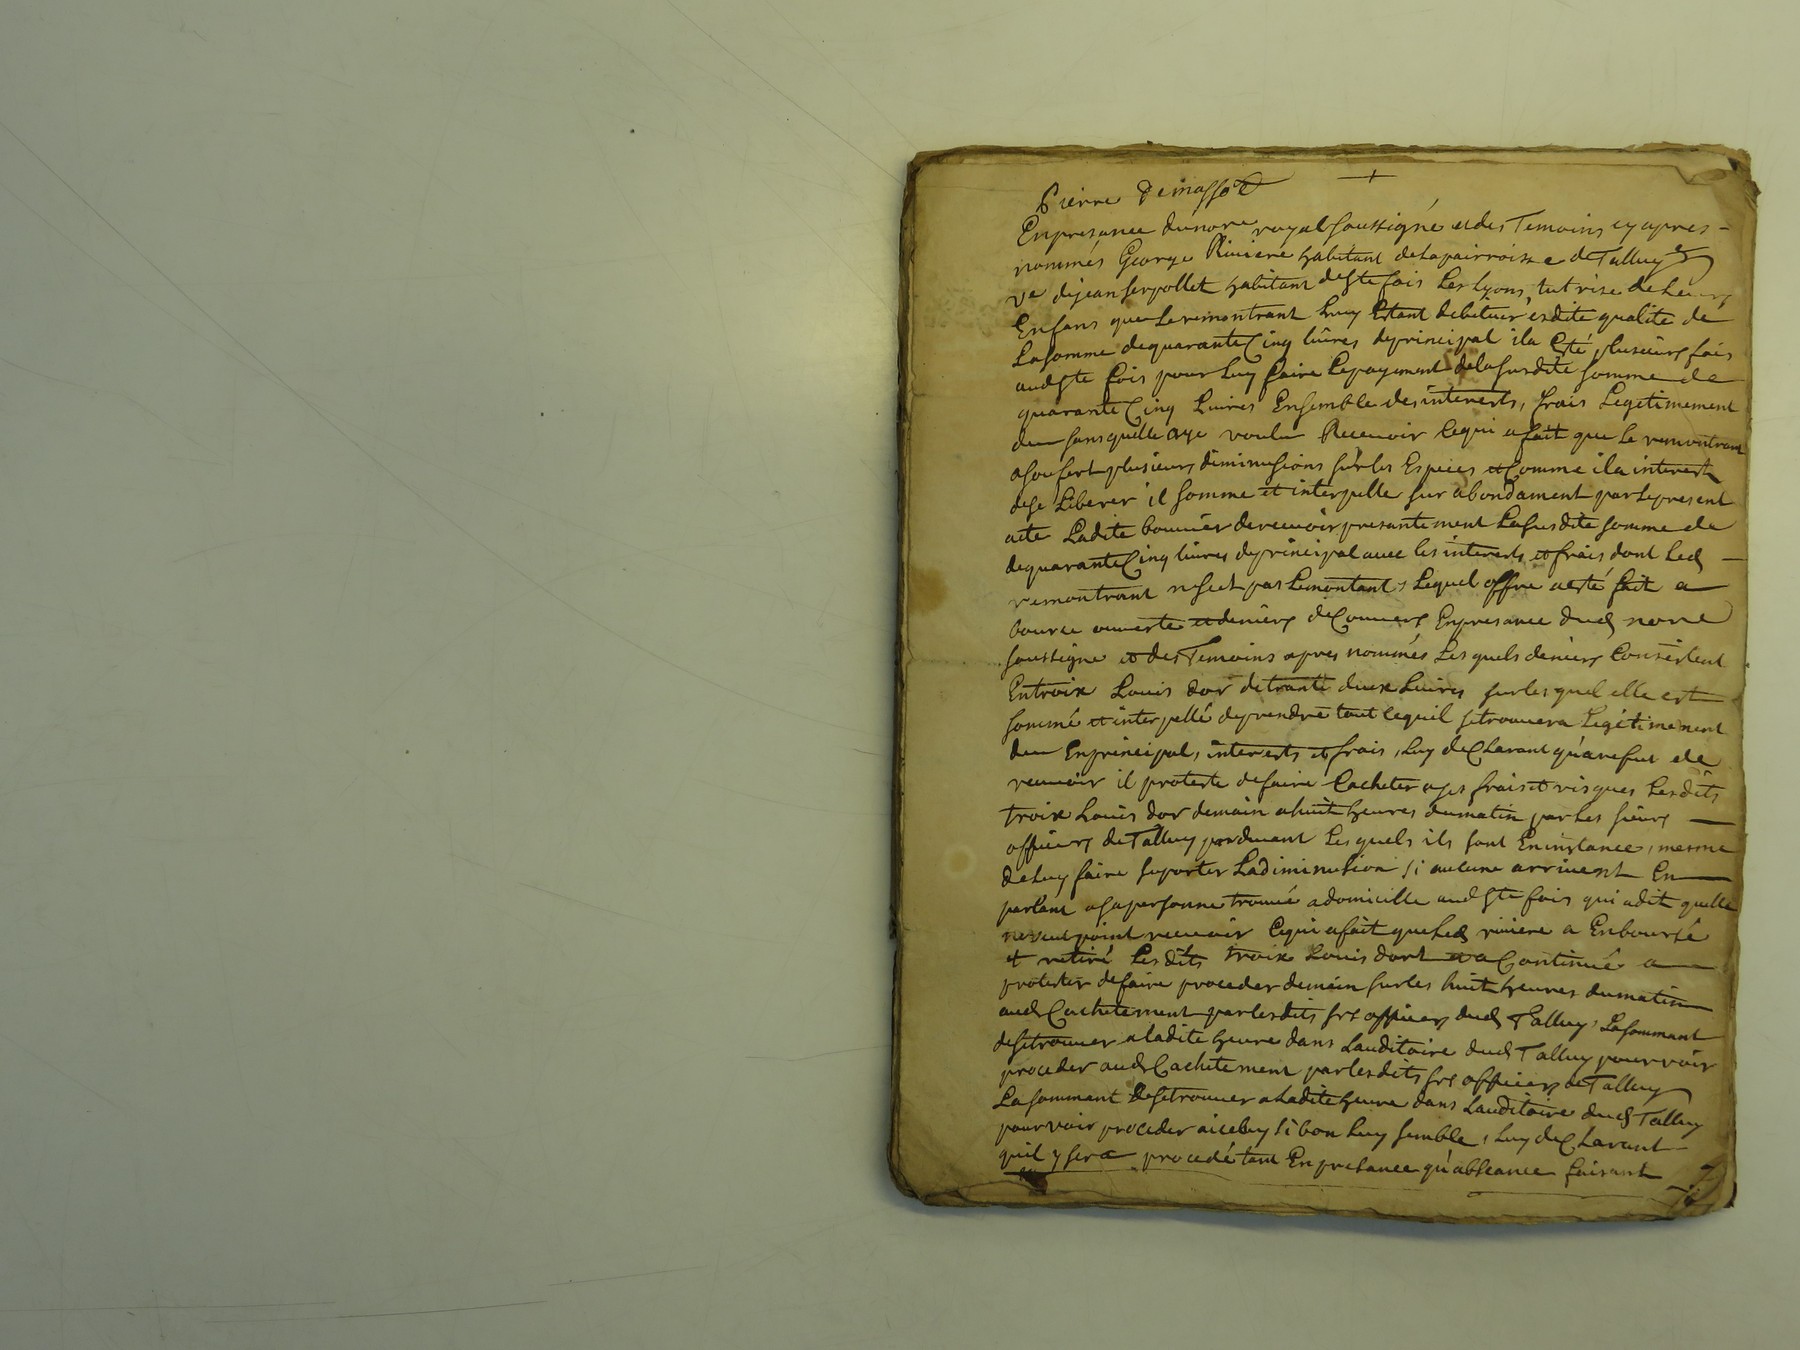 Pierre Demassot
Enpresance dunore royal soussigné et des Temoins cy apres -
nommés George Riviere habitant delapairroisse de Talluy
ve dejean serpollet habitant deste fois Les Lyons, tutrise de
Enfans que Le remontrant Luy Estant debiteur esdite qualité de
La somme de quarante Cinq livres deprincipal ila Esté plusieurs fois
aud ste fois pour Luy faire Lepayement delasusdite somme de
quarante Cinq Livres Ensemble des interests, frais Legetimement
deu sans quelle aye voulu Recevoir Cequi a fait que Le remontrant
a soufert plusieurs diminusions sur les Especes et Comme ila interest
dese Liberer il somme et interpelle sur abondament par Lepresent
acte Ladite bouvier derecevoir presantement Lasusdite somme de
dequarante Cinq livres deprincipal avec les interests et frais dont Led -
remontrant nscet pas Lemontant, Lequel offre aesté fait a
bource ouverte et deniers deCouvers Enpresance dud nore
soussigné et des Temoins apres nommés Les quels deniers Consistent
Entroix Louis dor detrante deux Livres sur les quel elle est
sommé et interpellé deprendre tout Cequil setrouvera Legétimement
deu Enprincipal, interests et frais, Luy deClarant qua refus de
recevoir il proteste defaire Cacheter a ses frais et risques Lesdits
troix Louis dor demain a huit heures dumatin par Les sieurs
officiers de Talluy pardevant Les quels ils sont En instance, mesme
deLuy faire suporter Ladiminusion si aucune arrivent En
parlant asapersonne trouvé a domicille aud ste fois qui adit quelle
neveut point recevoir Cequi a fait queLed riviere a Enboursé
et retiré Lesdits troix Louis dort et a Continué a
protester defaire proceder demain sur les huit heures dumatin
aud Cachetement par lesdits srs officiers dud Talluy, Lasommant
desetrouver a ladite heure dans Lauditoire dud Talluy pour voir
proceder aud Cachetement par lesdits srs officiers de Talluy
La sommant de setrouver a Ladite heure dans Lauditoire dud Talluy
pour voir proceder aiceluy si bon Luy semble, Luy deClarant
quil y sera procedé tant En presance qu'abseance faisant